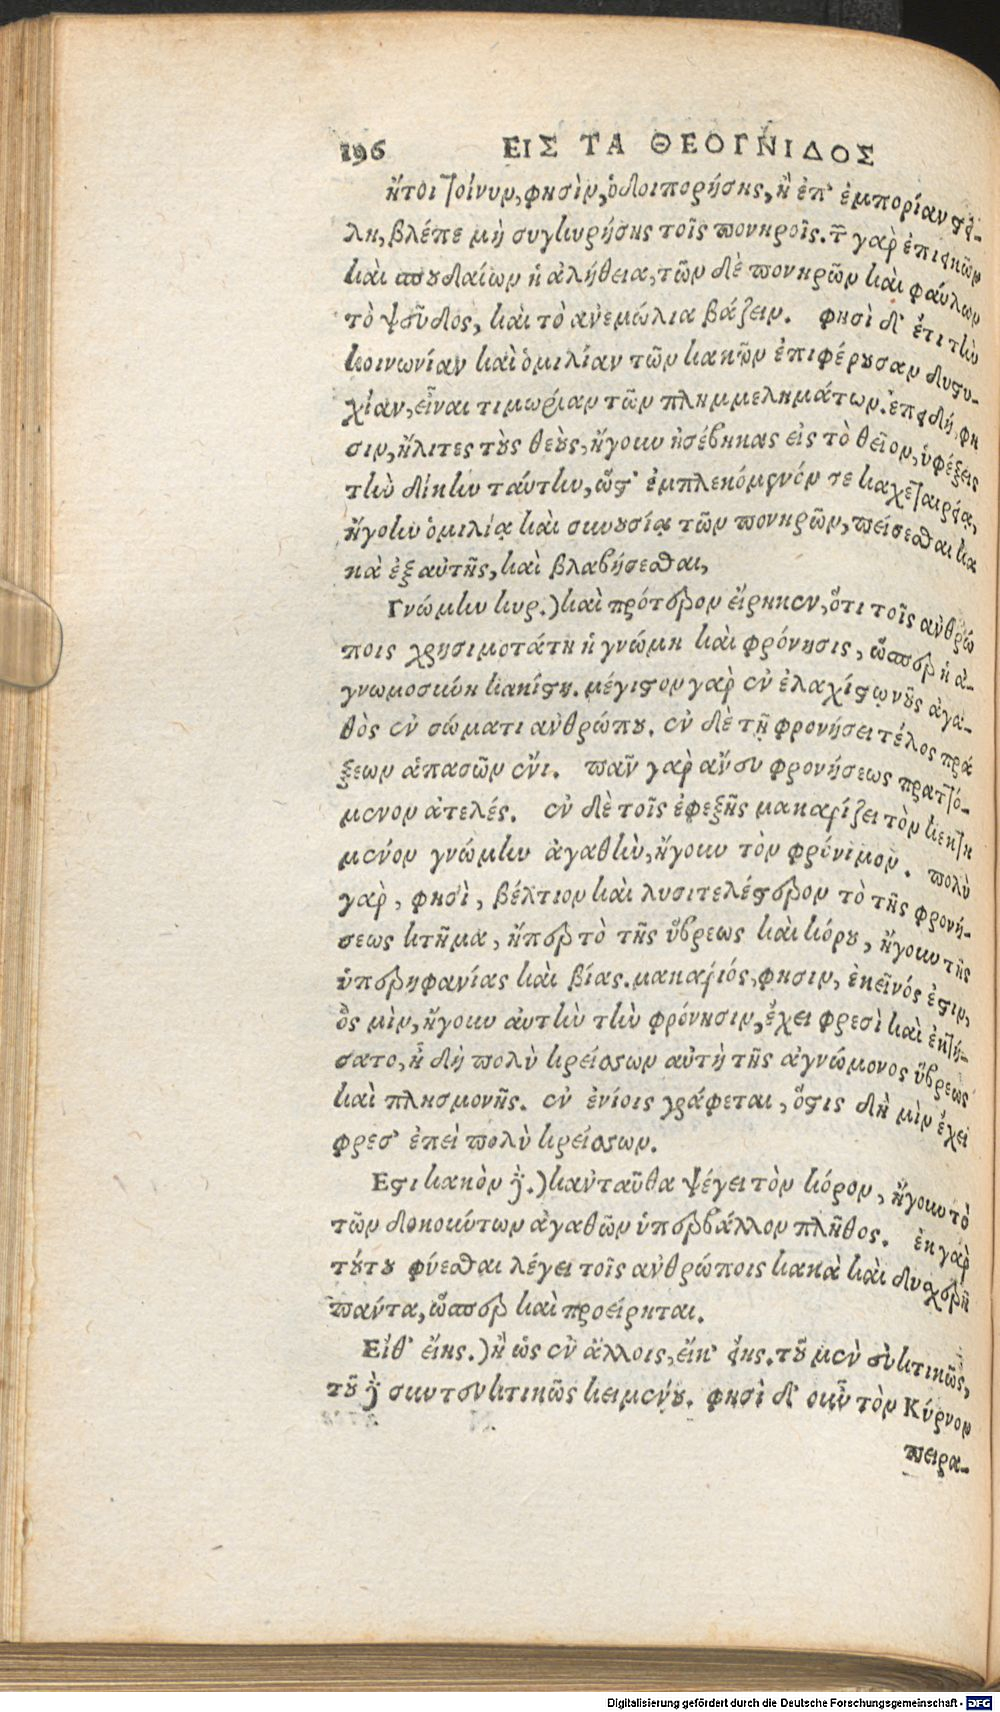 196 ΕΙΣ ΤΑ ΘΕΟΓΝΙΔΟΣ
ἤτοι τοίνυν, φησὶν, ὁδοιπορήσῃς, ἢ ἐπ' ἐμπορίαν στέ-
λῃ, βλέπε μὴ συγκυρήσῃς τοῖς πονηροῖς. τῶν γὰρ ἐπιστημῶν
καὶ σπουδαίων ἡ ἀλήθεια, τῶν δὲ πονηρῶν καὶ φαύλων
τὸ ψεῦδος, καὶ τὸ ἀνεμώλια βάζειν. φησὶ δ' ἔτι τὴν
κοινωνίαν καὶ ὁμιλίαν τῶν κακῶν ἐπιφέρουσαν δυστυ-
χίαν, εἶναι τιμωρίαν τῶν πλημμελημάτων. ἐπειδή, φη
σιν, ἤλιτες τοὺς θεοὺς, ἤγουν ἠσέβηκας εἰς τὸ θεῖον, ὑφέξεις
τὴν δίκην ταύτην, ὥστ' ἐμπλεκόμενόν σε καχεταιρείᾳ,
ἤγουν ὁμιλίᾳ καὶ συνουσίᾳ τῶν πονηρῶν, πείσεσθαι κα
κὰ ἐξ αὐτῆς, καὶ βλαβήσεσθαι,
Γνώμην κυρ.) καὶ πρότερον εἴρηκεν, ὅτι τοῖς ἀνθρώ
ποις χρησιμοτάτη ἡ γνώμη καὶ φρόνησις, ὥσπερ ἡ ἀ-
γνωμοσύνη κακίστη. μέγιστον γὰρ ἐν ἐλαχίστῳ νοῦς ἀγα-
θὸς ἐν σώματι ἀνθρώπου. ἐν δὲ τῇ φρονήσει τέλος πρά
ξεων ἁπασῶν ἔνι. πᾶν γὰρ ἄνευ φρονήσεως πραττό-
μενον ἀτελές. ἐν δὲ τοῖς ἐφεξῆς μακαρίζει τὸν κεκτη
μένον γνώμην ἀγαθὴν, ἤγουν τὸν φρόνιμον. πολὺ
γὰρ, φησὶ, βέλτιον καὶ λυσιτελέστερον τὸ τῆς φρονή-
σεως κτῆμα, ἤπερ τὸ τῆς ὕβρεως καὶ κόρου, ἤγουν τῆς
ὑπερηφανίας καὶ βίας. μακαριός, φησιν, ἐκεῖνός ἐστιν,
ὃς μὶν, ἤγουν αὐτὴν τὴν φρόνησιν, ἔχει φρεσὶ καὶ ἐκτή-
σατο, ἢ δὴ πολὺ κρείσσων αὐτὴ τῆς ἀγνώμονος ὕβρεως
καὶ πλησμονῆς. ἐν ἐνίοις γράφεται, ὅστις δὴ μὶν ἔχει
φρεσ' ἐπεὶ πολὺ κρείσσων.
Εστι κακὸν δὲ.) κἀνταῦθα ψέγει τὸν κόρον, ἤγουν τὸ
τῶν δοκούντων ἀγαθῶν ὑπερβάλλον πλῆθος. ἐκ γὰρ
τούτου φύεσθαι λέγει τοῖς ἀνθρώποις κακὰ καὶ δυσχερῆ
πάντα, ὥσπερ καὶ προείρηται.
Εἴθ' εἴης.) ἢ ὡς ἐν ἄλλοις, εἴπ' εἴης. τοῦ μὲν εὐκτικῶς,
τοῦ δὲ συντευκτικῶς κειμένου. φησὶ δ' οὖν τὸν Κύρνον
πειρα-
Digitalisierung gefördert durch die Deutsche Forschungsgemeinschaft - DFG